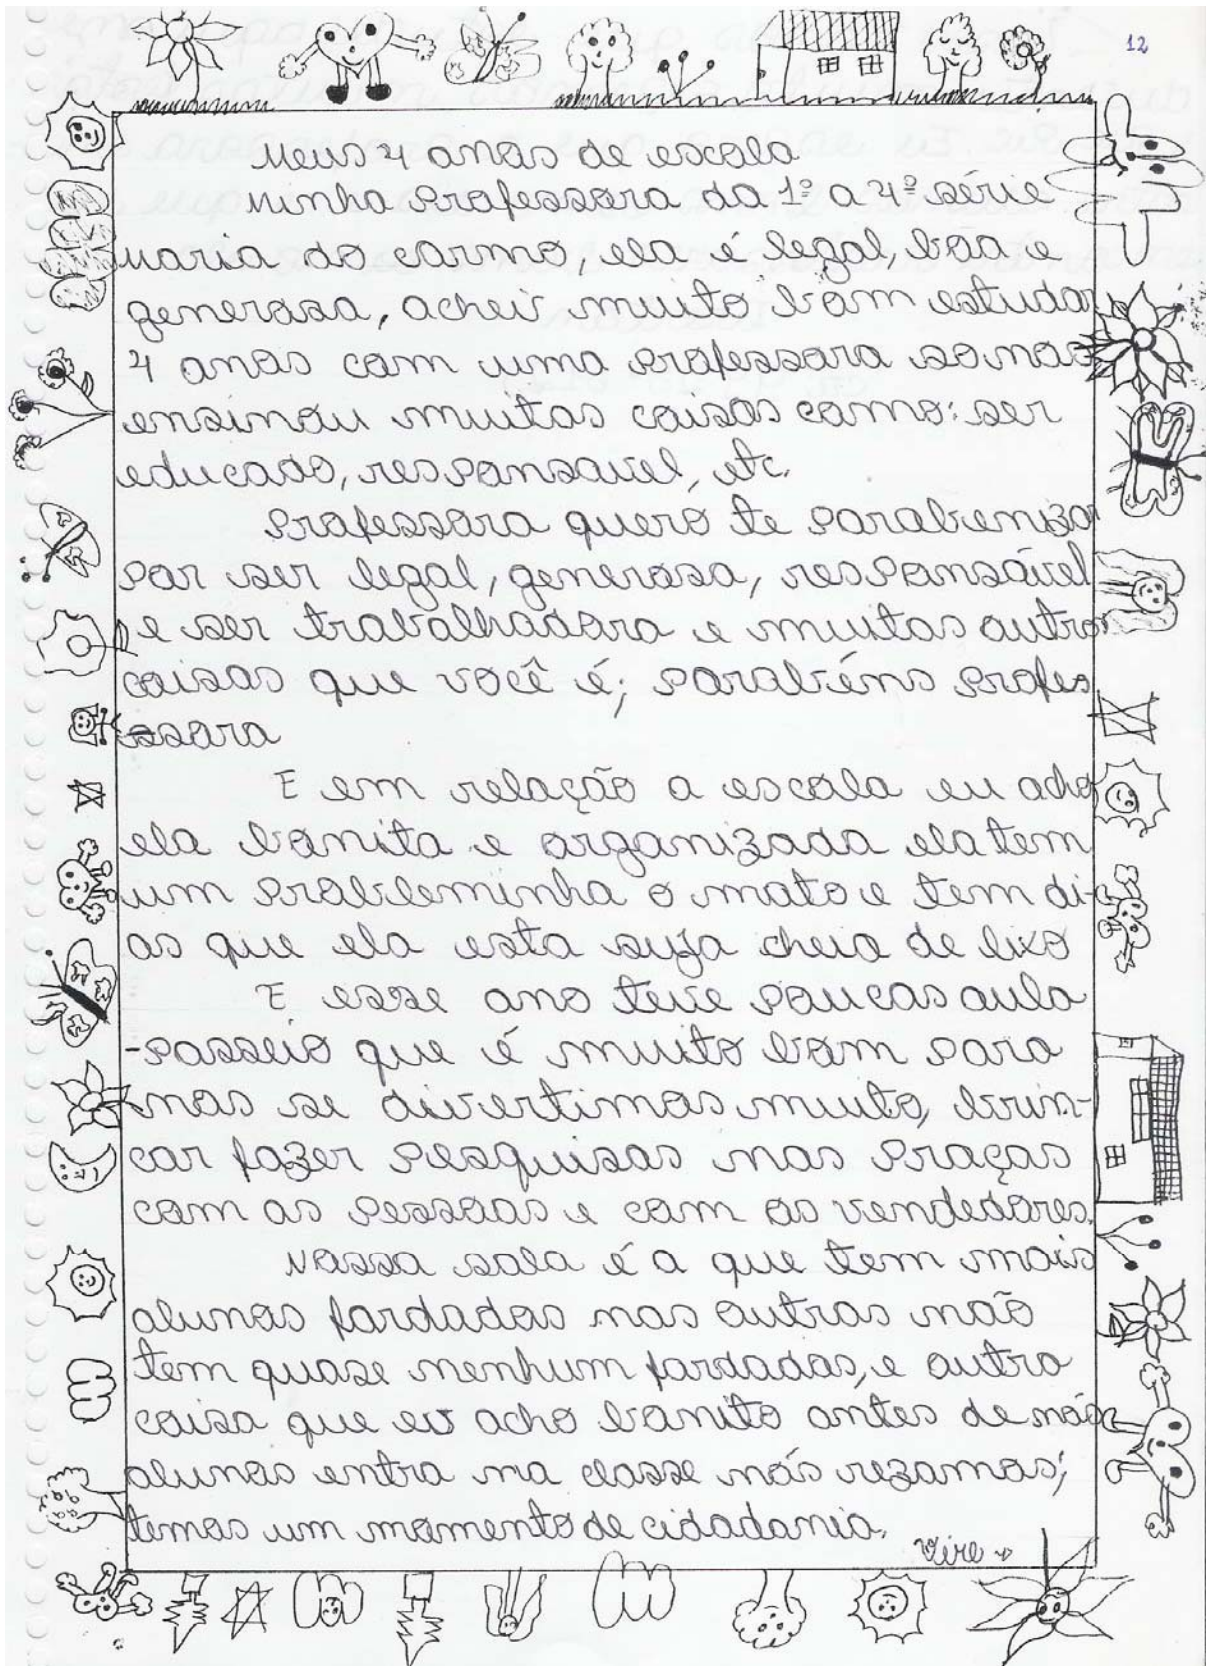 12
Meus 4 anos de escola
Minha Professora da 1ª a 4ª série
Maria do Carmo, ela é legal, boa e
generosa, achei muito bom estudar
4 anos com uma professora so nos
ensinou muitas coisas como: ser
educado, responsavel, etc.
Professora quero te parabeniza
por ser legal, generosa, responsável
e ser trabalhadora e muitas outros
coisas que você é; parabéns profes
ssora
E em relação a escola eu acho
ela bonita e organizada ela tem
um probleminha o mato e tem di-
as que ela esta suja cheia de lixo
E esse ano teve poucas aula
-passeio que é muito bom para
nos se divertimos muito, brin-
car fazer pesquisas nas praças
com as pessoas e com os vendedores.
Nossa sala é a que tem mais
alunos fardados nas outras não
tem quase nenhum fardados, e outra
coisa que eu acho bonito antes de nós
alunos entra na classe nós rezamos;
temos um momento de cidadania.
Vire →